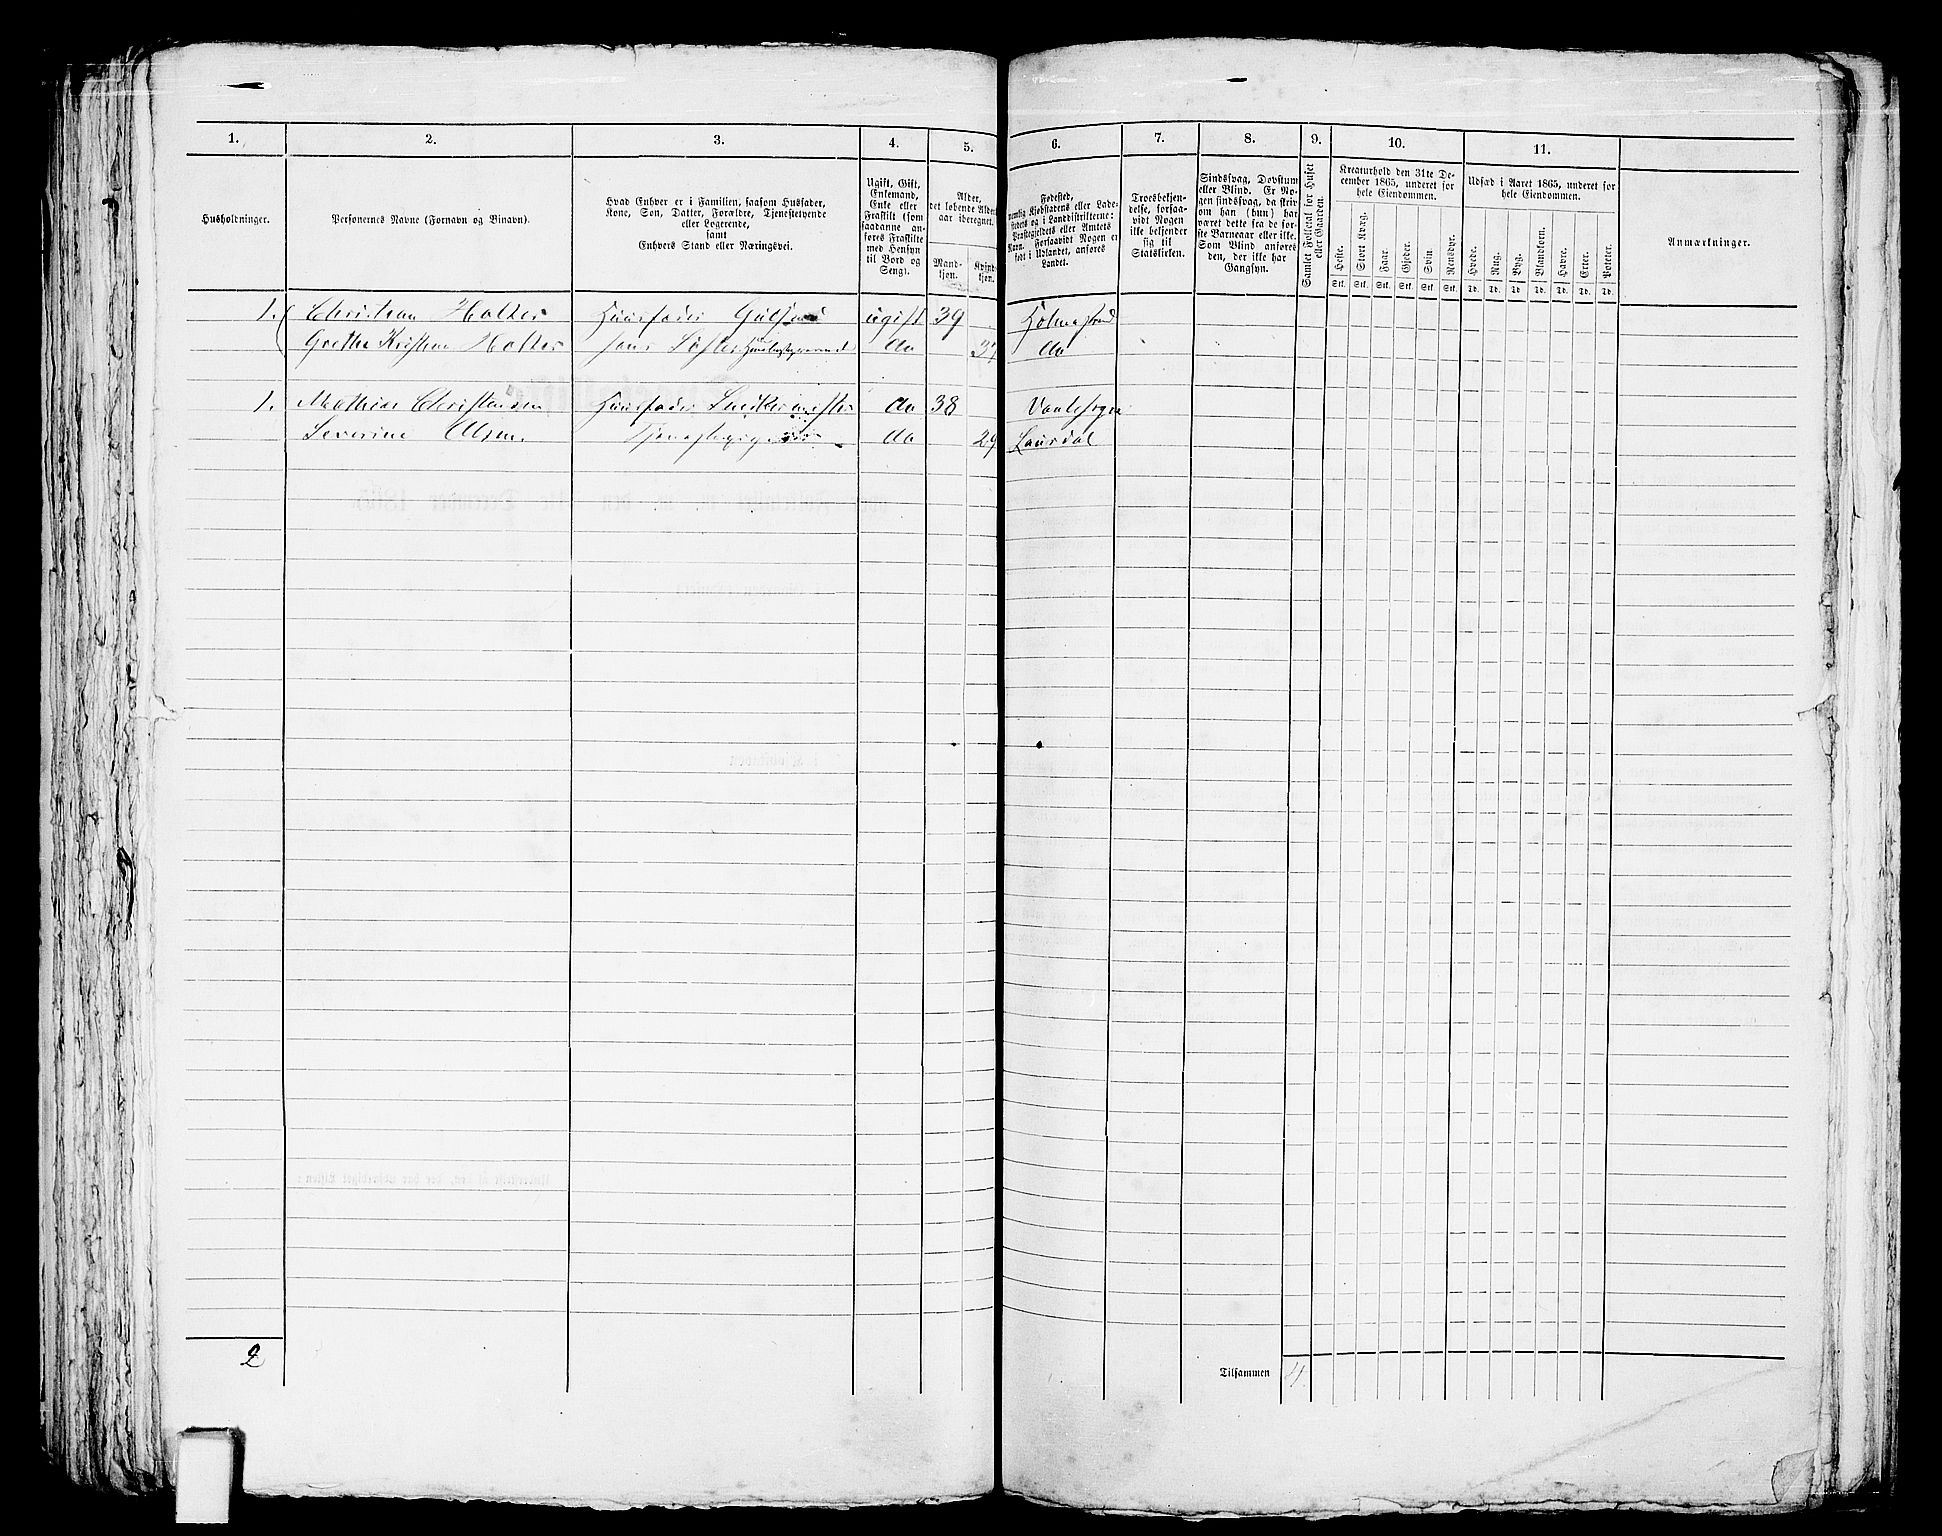 1. 2. 3. 4. 5. 6. 7. 8. 9. 10. 11.
Husholdninger.
Personernes Navne (Fornavn og Binavn).
Hvad Enhver er i Familien, saasom Husfader,
Kone, Søn, Datter, Forældre, Tjenestetyende
eller Logerende,
samt
Enhvers Stand eller Næringsvei.
Ugift, Gift,
Enkemand,
Enke eller
Fraskilt (som
saadanne an-
føres Fraskilte
med Hensyn
til Bord og
Seng).
Alder,
det løbende Alders-
aar iberegnet.
Mand-
kjøn.
Kvind-
kjøn.
Fødested,
nemlig Kjøbstadens eller Lade-
stedets og i Landdistrikterne:
Præstegjeldets eller Amtets
Navn. Forsaavidt Nogen er
født i Udlandet, anføres
Landet.
Troesbekjen-
delse, forsaa-
vidt Nogen
ikke bekjender
sig til
Statskirken.
Sindssvag, Døvstum
eller Blind. Er No-
gen sindssvag, da skriv
om han (hun) har
været dette fra de før-
ste Barneaar eller ikke.
Som Blind anføres
den, der ikke har
Gangsyn.
Samlet Folketal for Huset
eller Gaarden.
Kreaturhold den 31te De-
cember 1865, underet for
hele Eiendommen.
Heste. Stort Kvæg. Faar. Gjeder. Svin. Rensdyr.
Stk. Stk. Stk. Stk. Stk. Stk.
Udsæd i Aaret 1865, underet for
hele Eiendommen.
Hvede. Rug. Byg. Blandkorn. Havre. Erter. Poteter.
Td. Td. Td. Td. Td. Td. Td.
Anmærkninger.
1. Christian Holter Huusfader ugift 39 Holmestrand
Grethe Kristine Holter hans Søster do 37 do
1. Mathias Christensen Huusfader Snedkermester do 38
Severine Olsen Tjenestepige do 29 Laurdal
2
Tilsammen 4.